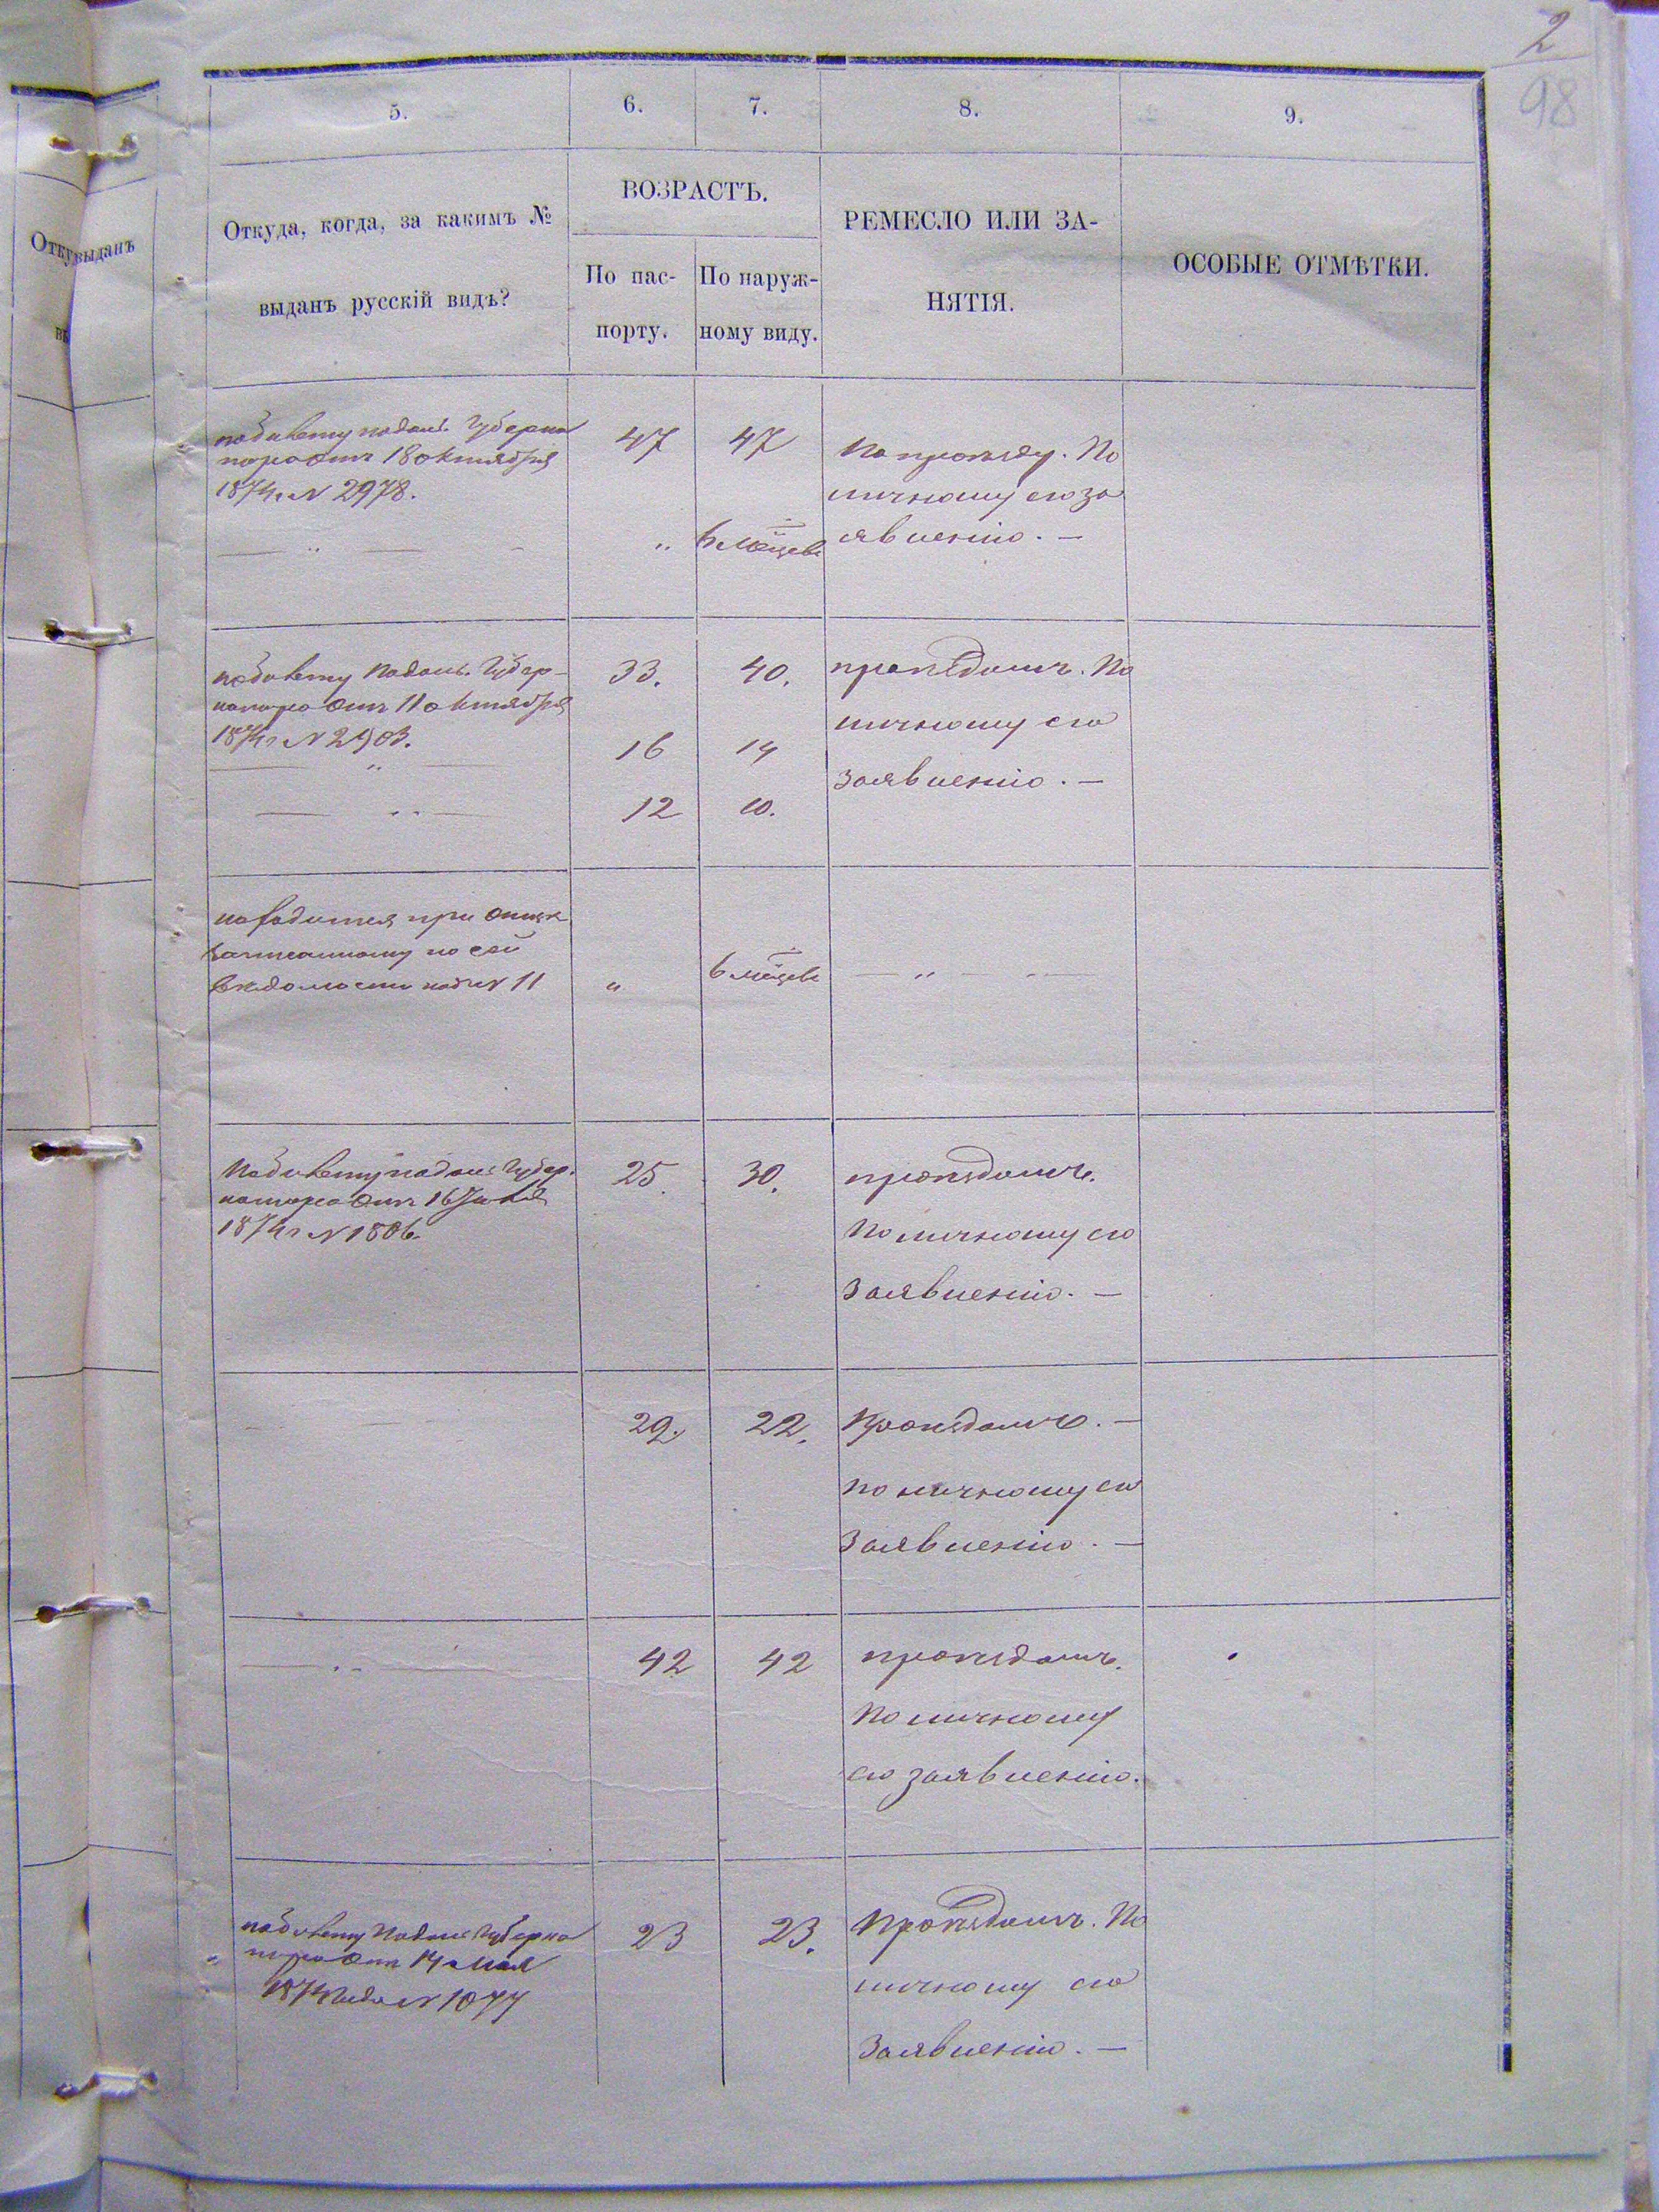 2
98
5.
6.
7.
8.
9.
Откуда, когда, за какимъ №
выданъ русскій видъ?
ВОЗРАСТЪ.
По пас-
порту.
По наруж-
ному виду.
РЕМЕСЛО ИЛИ ЗА-
НЯТІЯ.
ОСОБЫЕ ОТМѢТКИ.
по билету Подоль. Губерна
тора отъ 18 октября
1874 г. N 2978.
47
47
По
личному его за
явленію. —
— " —
"
6 мѣсяцевъ
по билету Подоль. Губер-
натора отъ 11 октября
1874 г N 2903.
33.
40.
проѣздомъ. По
личному его
заявленію. —
— " —
16
14
— " —
12
10.
находится при отцѣ
записанному по сей
вѣдомости подъ N 11
"
6 мѣсяцевъ
— " —
По билету Подоль Губер.
натора отъ 16
1874 г N 1806.
25.
30.
проѣздомъ.
По личному его
заявленію. —
29.
22.
Проѣздомъ. —
по личному его
заявленію. —
— " —
42
42
проѣздомъ.
По личному
его заявленію.
по билету Подоль Губерна
тора отъ 14 мая
1874 года N 1077
23
23.
Проѣздомъ. По
личному его
заявленію. —